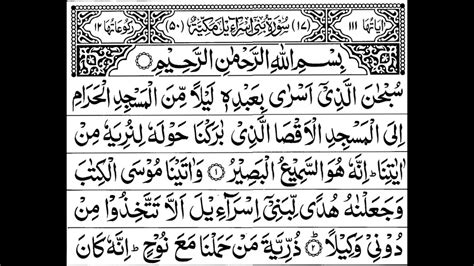 اٰیَاتُهَا ١١١ (١٧) سُوْرَةُ بَنِیْۤ اِسْرَآءِیْلَ مَكِّیَّةٌ (٥٠) رُكُوْعَاتُهَا ١٢
بِسْمِ اللّٰهِ الرَّحْمٰنِ الرَّحِیْمِ
سُبْحٰنَ الَّذِیْۤ اَسْرٰی بِعَبْدِهٖ لَیْلًا مِّنَ الْمَسْجِدِ الْحَرَامِ
اِلَی الْمَسْجِدِ الْاَقْصَا الَّذِیْ بٰرَكْنَا حَوْلَهٗ لِنُرِیَهٗ مِنْ
اٰیٰتِنَا ؕ اِنَّهٗ هُوَ السَّمِیْعُ الْبَصِیْرُ ۝١ وَاٰتَیْنَا مُوْسَی الْكِتٰبَ
وَجَعَلْنٰهُ هُدًی لِّبَنِیْۤ اِسْرَآءِیْلَ اَلَّا تَتَّخِذُوْا مِنْ
دُوْنِیْ وَكِیْلًا ۝٢ ذُرِّیَّةَ مَنْ حَمَلْنَا مَعَ نُوْحٍ ؕ اِنَّهٗ كَانَ